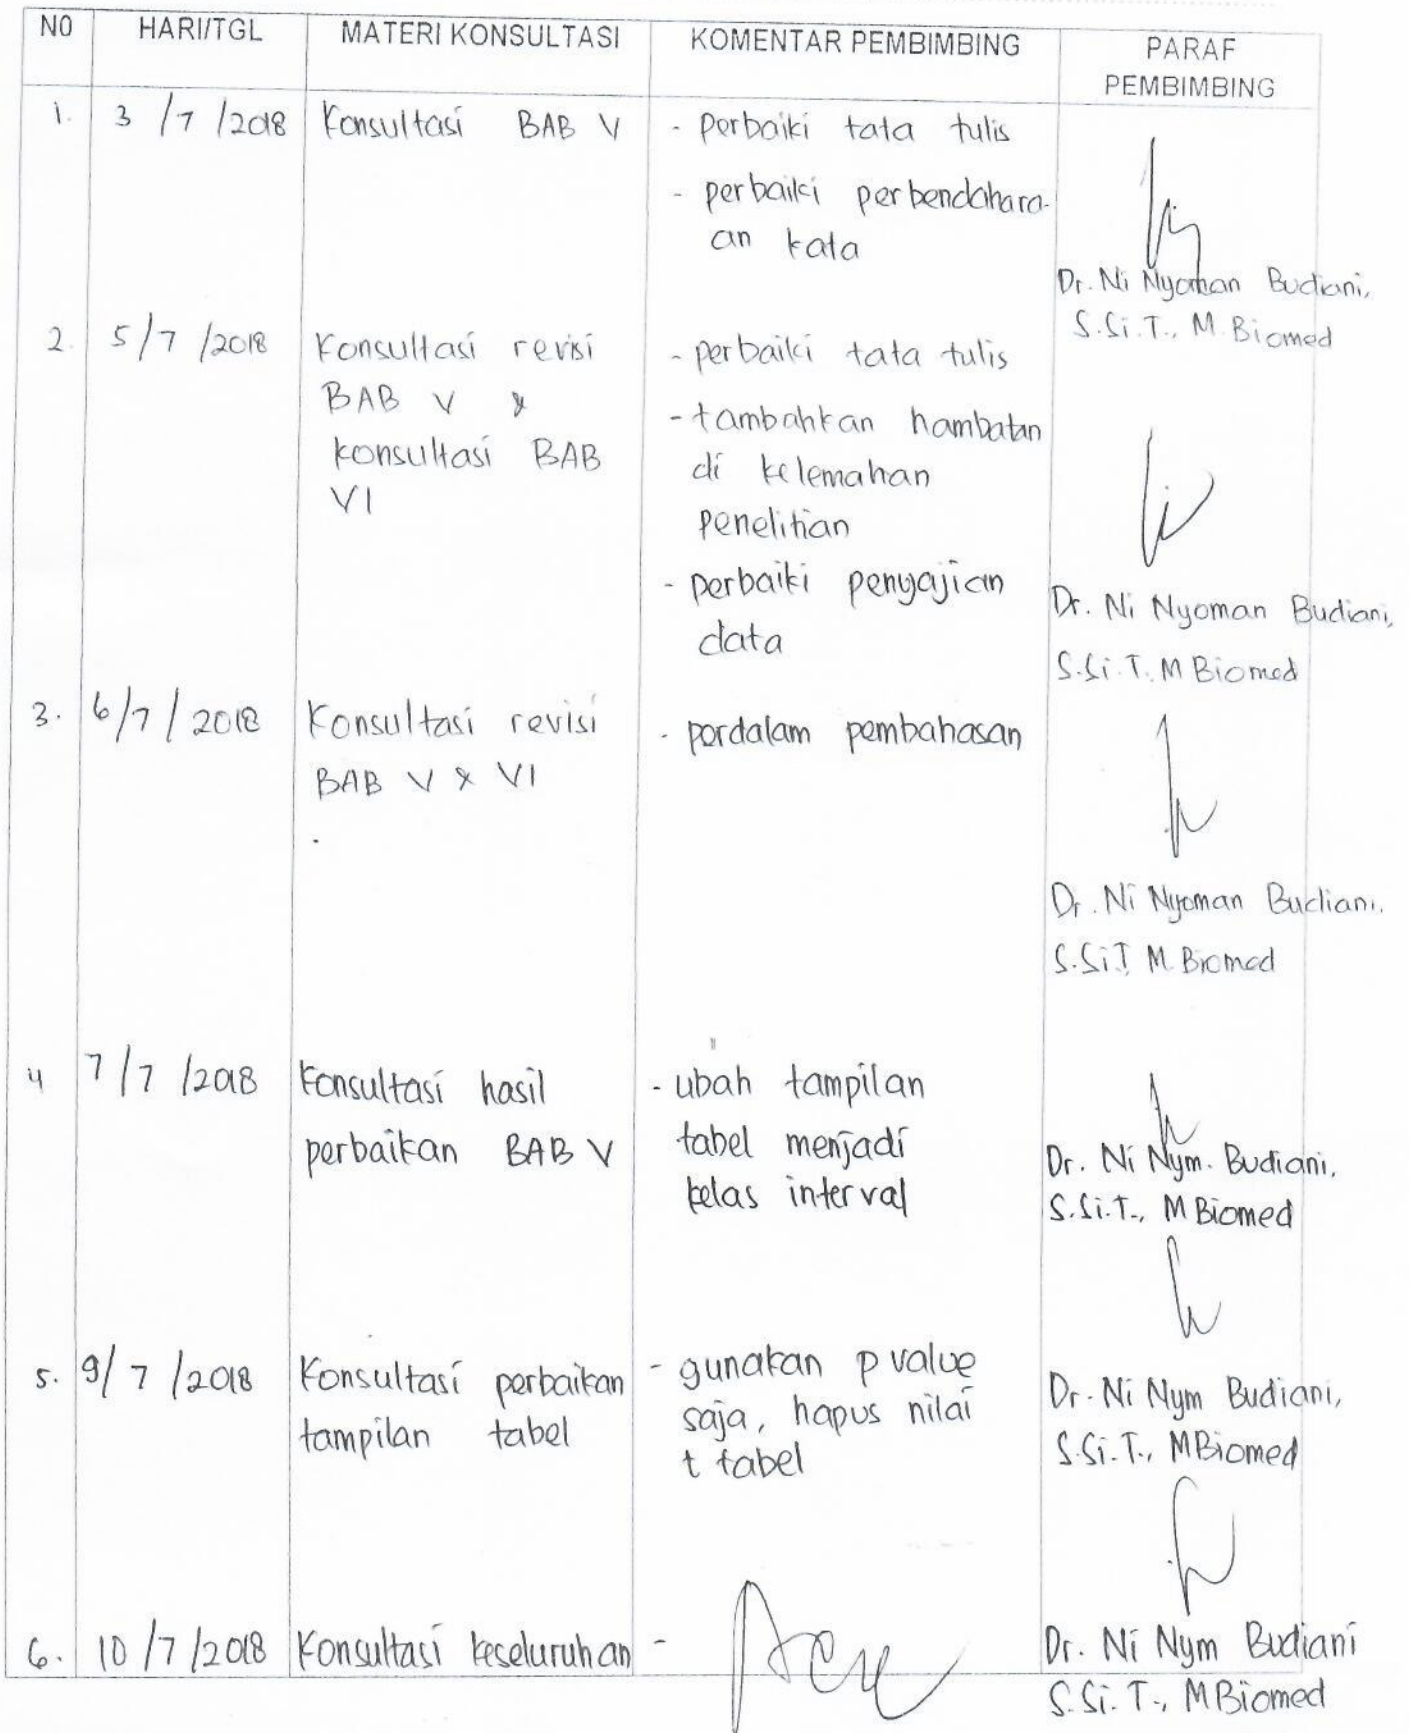 NO HARI/TGL MATERI KONSULTASI KOMENTAR PEMBIMBING PARAF PEMBIMBING
1. 3 /7 /2018 Konsultasi BAB V - perbaiki tata tulis
- perbaiki perbendahara-
an kata
Dr. Ni Nyoman Budiani,
S.Si.T., M. Biomed
2. 5/7 /2018 Konsultasi revisi - perbaiki tata tulis
BAB V & - tambahkan hambatan
konsultasi BAB di kelemahan
VI penelitian
- perbaiki penyajian
data
Dr. Ni Nyoman Budiani,
S.Si.T. M Biomed
3. 6/7/2018 Konsultasi revisi - perdalam pembahasan
BAB V & VI
Dr. Ni Nyoman Budiani.
S.SiT M. Biomed
4 7/7 /2018 Konsultasi hasil - ubah tampilan
perbaikan BAB V tabel menjadi
kelas interval
Dr. Ni Nym. Budiani,
S.Si.T., M Biomed
5. 9/7 /2018 Konsultasi perbaikan - gunakan p value
tampilan tabel saja, hapus nilai
t tabel
Dr. Ni Nym Budiani,
S.Si.T., MBiomed
6. 10/7/2018 Konsultasi keseluruhan - Acc
Dr. Ni Nym Budiani
S.Si.T., MBiomed